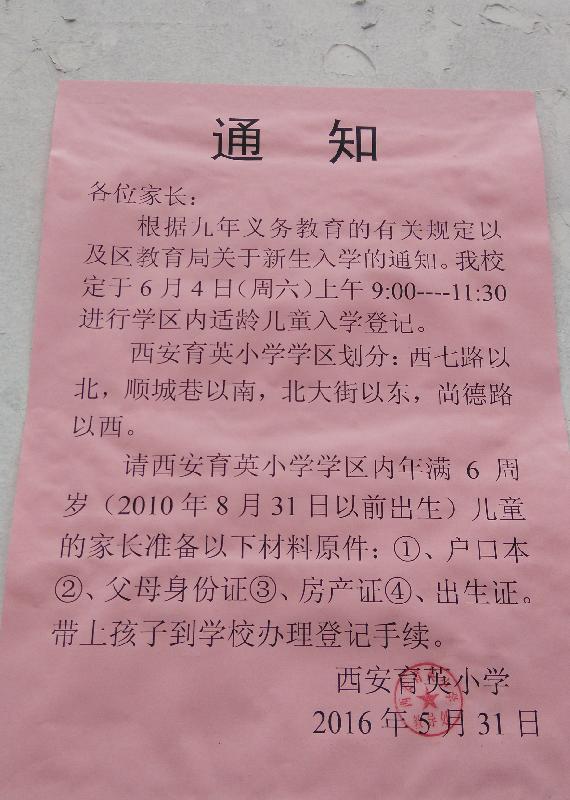 通 知
各位家长：
根据九年义务教育的有关规定以
及区教育局关于新生入学的通知。我校
定于6月4日（周六）上午9:00----11:30
进行学区内适龄儿童入学登记。
西安育英小学学区划分：西七路以
北，顺城巷以南，北大街以东，尚德路
以西。
请西安育英小学学区内年满 6 周
岁（2010年8月31日以前出生）儿童
的家长准备以下材料原件：①、户口本
②、父母身份证③、房产证④、出生证。
带上孩子到学校办理登记手续。
西安育英小学
2016年5月31日